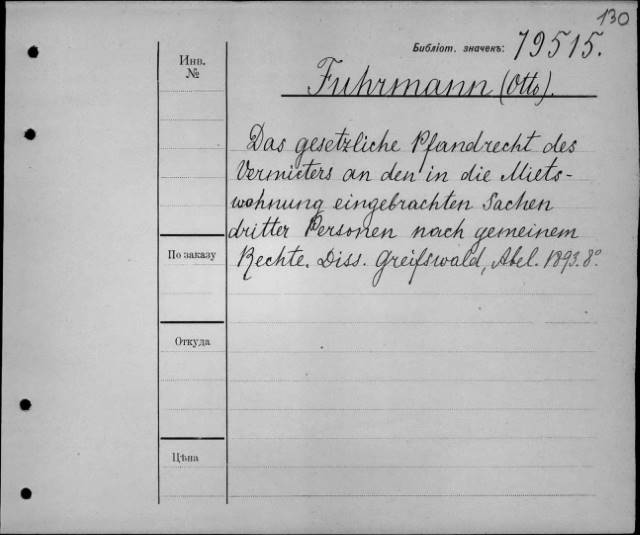 130
Библіот. значекъ: 79515.
Инв. №
Fuhrmann (Otto).
Das gesetzliche Pfandrecht des
Vermieters an den in die Miets-
wohnung eingebrachten Sachen
dritter Personen nach gemeinem
Rechte. Diss. Greifswald, Abel. 1893. 8°.
По заказу
Откуда
Цѣна